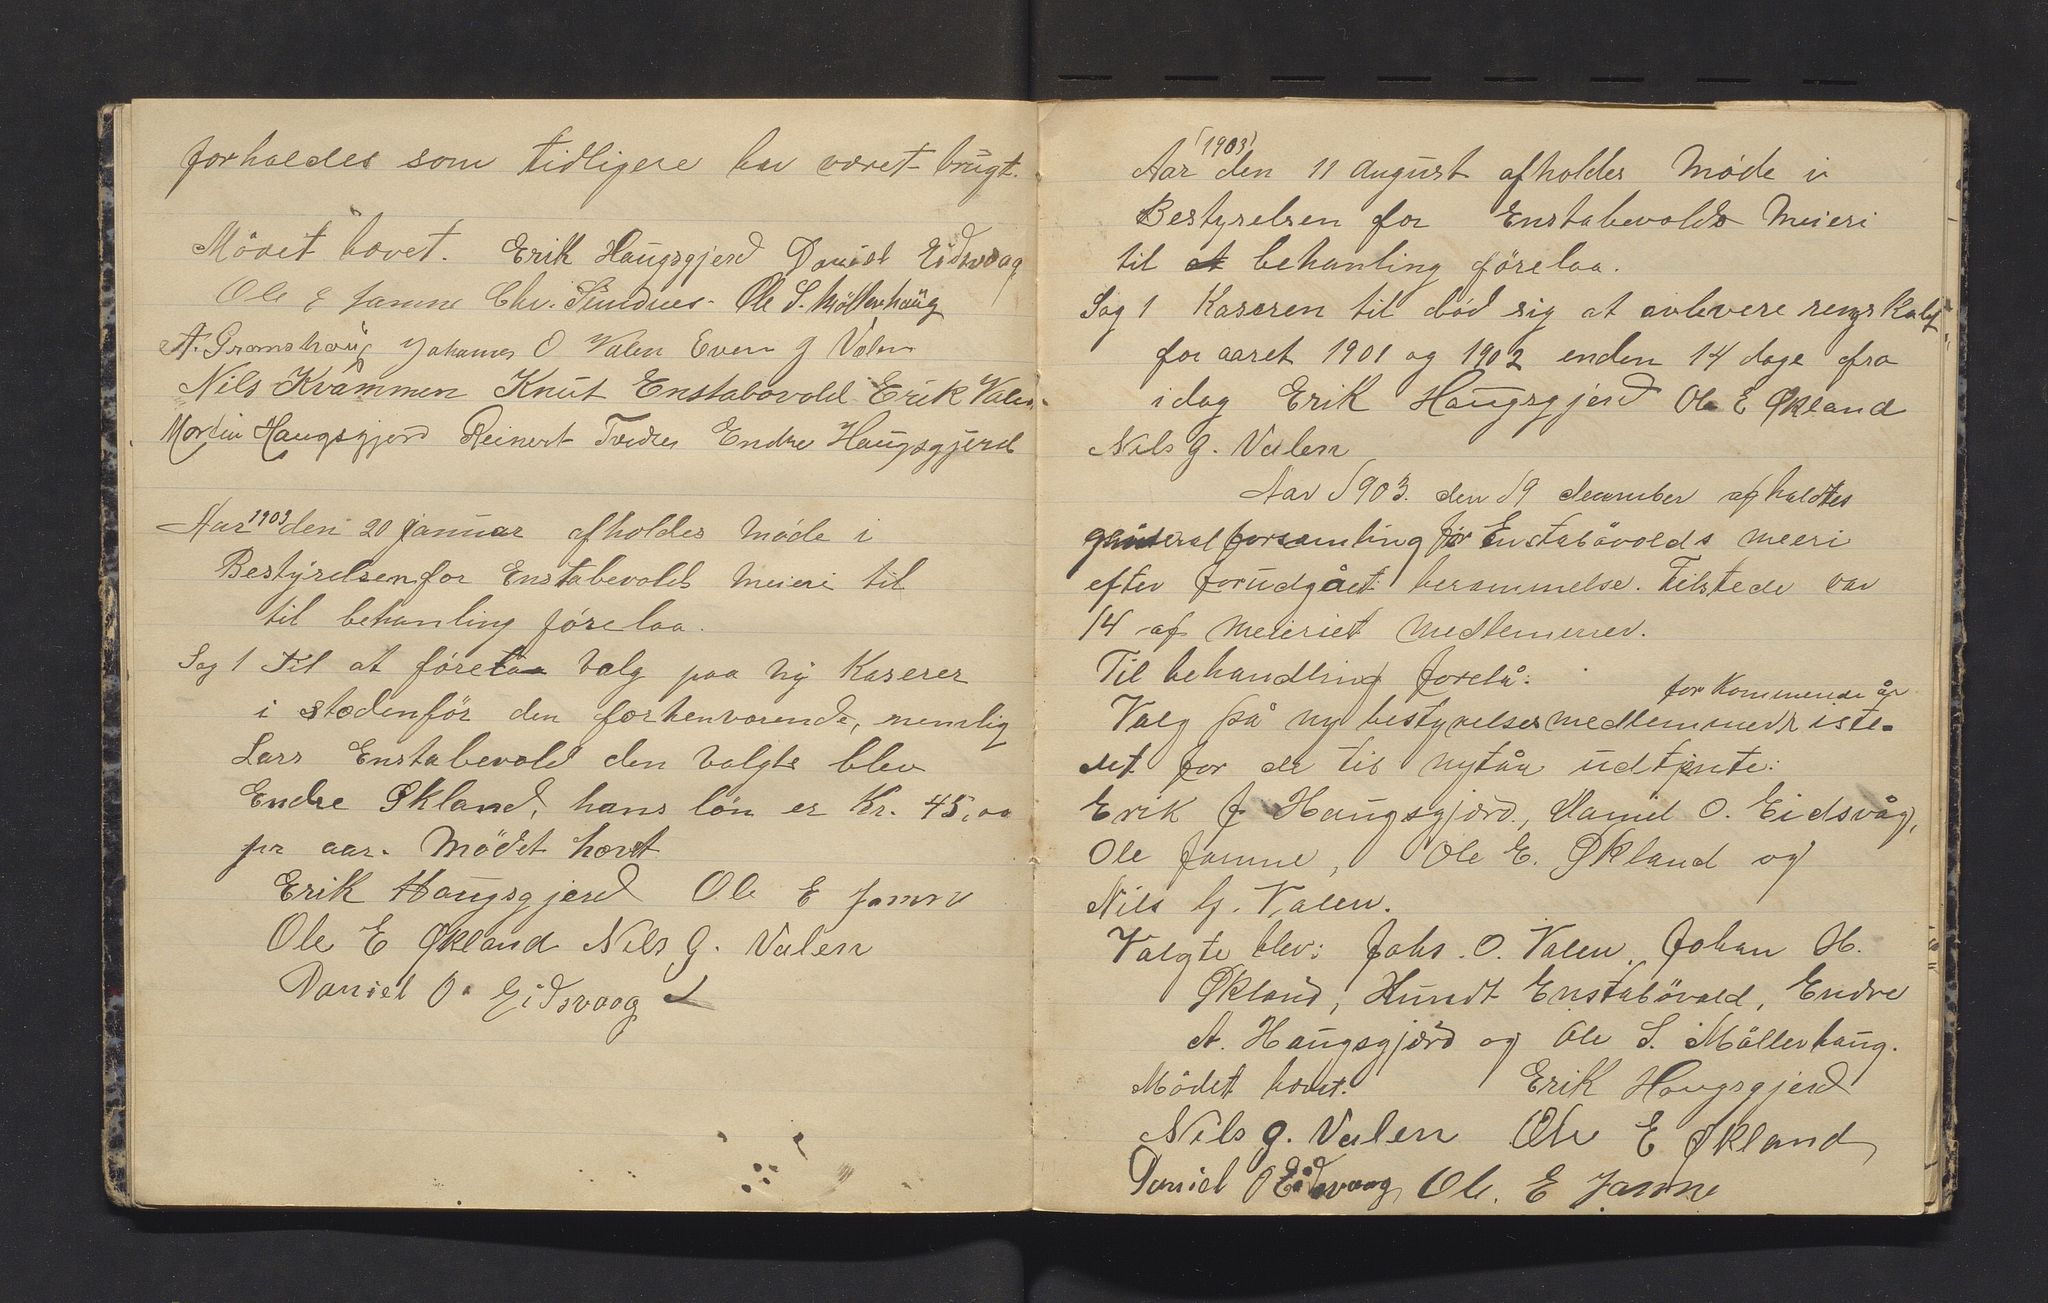 forholdes som tidligere har været brugt.
Mödet hævet. Erik Haugsgjerd Daniel Eidsvaag
Ole E Jamne Chr. Sundnes Ole S. Möllerhaug
A. Gramshaug Johannes O Valen Even J Valen
Nils Kvammen Knut Enstabövold Erik Valen
Martin Haugsgjerd Reinert Tvedes Endre Haugsgjerd
Aar 1903 den 20 januar afholdes Møde i
Bestyrelsen for Enstabevolds Meieri til
til behanling førelaa.
Sag 1 Til at føretaa valg paa ny Kaserer
i stedenför den forhenværende, nemlig
Lars Enstabevold den valgte blev
Endre Økland, hans lön er Kr. 45,00
pr aar. Mødet hævet
Erik Haugsgjerd Ole E Jamne
Ole E Økland Nils G. Valen
Daniel O. Eidsvaag
Aar (1903) den 11 august afholdes Møde i
Bestyrelsen for Enstabevolds Meieri
til at behanling førelaa.
Sag 1 Kaseren til bød sig at avlevere rengskabet
for aaret 1901 og 1902 enden 14 dage fra
idag Erik Haugsgjerd Ole E Økland
Nils G. Valen
Aar 1903. den 19 december afholdtes
general forsamling för Enstabövolds meeri
efter forudgået berammelse. Tilstede var
14 af meieriet medlemmer.
Til behandling forelå:
for Kommende år
Valg på ny bestyrelsesmedlemmer iste-
det for de til nytår udtjente:
Erik J. Haugsgjærd, Daniel O. Eidsvåg,
Ole Jamne, Ole E. Økland og
Nils G. Valen.
Valgte blev: Johs. O. Valen, Johan H.
Økland, Knudt Enstabövold, Endre
A. Haugsgjærd og Ole S. Möllerhaug.
Mödet hævet. Erik Haugsgjerd
Nils G. Valen Ole E Økland
Daniel O Eidsvaag Ole E Jamne